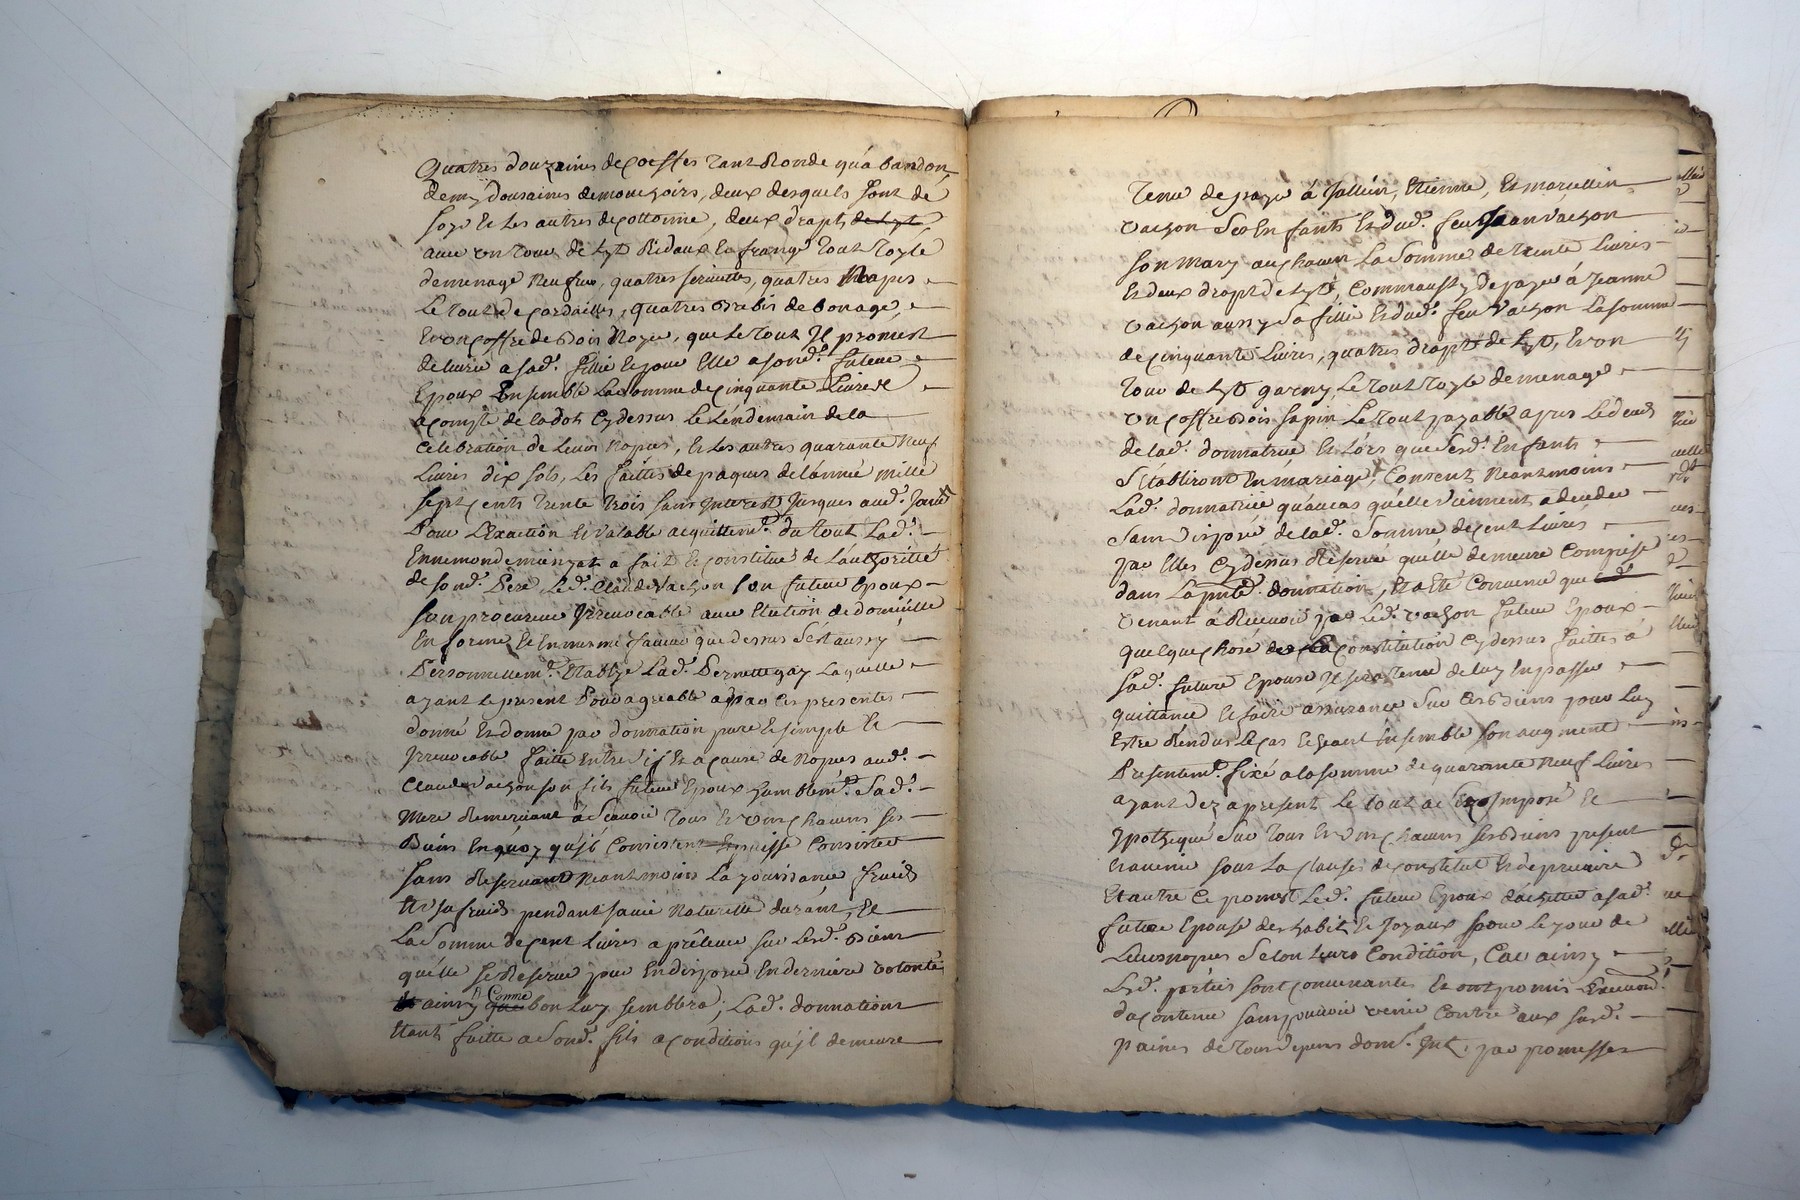 Quatres douzaines de coeffes tant Ronde qu'a bandon
demy dousaines de mouchoirs, deux desquels sont de
soye et les autres de cottonne, deux draps de Lyt,
avec un tour de Lyt Ridaux et frange tout toyle
demenage Neufve, quatres serviettes, quatres Napes
Le tout de cordailles, quatres Brebis de
Et un coffre de Bois Noyer, que Le tout Il promest
de livrer a sad. fillie et pour Elle a sond. futeur
Epoux Ensemble La somme de cinquante Livres
a compte de la dot Cydessus Le Lendemain de la
Celebration de Leurs Nopces, Et Les autres quarante Neuf
Livres dix sols, Les faittes de paques de l'année mille
sept cents trente trois sans Interest Jusques aud.
Pour L'Exaction Et Valable acquittem. du tout Lad.
Ennemonde a fait Et constitué de L'authoritté
de sond. Pere Led. Claude Vachon son futeur Epoux
son procureur Irrevocable avec Elution de domicille
En forme Et En mesme faveur que dessus S'est aussy
Personnellem. Etablye Lad. Pernette gay Laquelle
ayant Le present Pour agreable a par Ces presentes
donné Et donne par donnation pure Et simple Et
Irrevocable faitte Entre vif Et a cause de Nopces aud.
Claude Vachon son fils futeur Epoux humblem. Sad.
Mere Remerciant a Scavoir tous Et un chacuns ses
Biens En quoy qu'jl Consistent Et puisse Consister
sans Reservant Neantmoins La jouissance fruits
Et usufruits pendant sa vie Naturelle durant, Et
La Somme de cent Livres a prélever sur Lesd. Biens
qu'elle se Reserve pour En disposer En derniere volonté
ainsy Comme bon Luy semblera; Lad. donnation
Etant faitte a Sond. fils a conditions qu'jl demeure
Tenu de payer à Jullien, Etienne, Et marcellin
Vachon Ses Enfants Et dud. feu Jean Vachon
son Mary a un chacun La Somme de trente Livres
Et deux draps de Lyt, Comm'aussy de payer à Jeanne
Vachon aussy Sa fillie Et dud. feu Vachon La somme
de cinquante Livres, quatres draps de Lyt, Et un
tour de Lyt garny Le tout toyle de menage
un coffre Bois sapin Le tout payable apres Le deces
de lad. donnatrice Et Lors que Sesd. Enfants
S'Etabliront En mariage, Consent Neantmoins
Lad. donnatrice qu'au cas qu'elle viennent a deceder
sans disposé de lad. Somme de cent Livres
par Elles Cydessus Reservé qu'elle demeure Comprise
dans La pnte donnation, Et a Eté Convenue que
venant à Recevoir par Led. Vachon futeur Epoux
quelque chose de La Constitution Cydessus faittes à
sad. future Epouse Il sera tenu de luy En passer
quittance Et faire assurance Sur Ces Biens pour Luy
Estre Rendus Le cas Echeant Ensemble son augment
Presentem. fixé a la somme de quarante Neuf Livres
ayant dez a present Le tout Imposé Et
Ypothequé Sur tous Et un chacuns ses Biens present
Et avenir sous La Clauses de constitut Et de precaire
Et outre Ce promest Led. futeur Epoux d'achetter a sad.
future Epouse des habits Et Joyaux pour Le jour de
Leurs nopces Selon Leurs Condition, Car ainsy
Lesd. parties sont convenantes Et ont promis
d'a contenu sans pouvoir venir Contre aux susd.
paines de tous depens dom. Int. par promesses